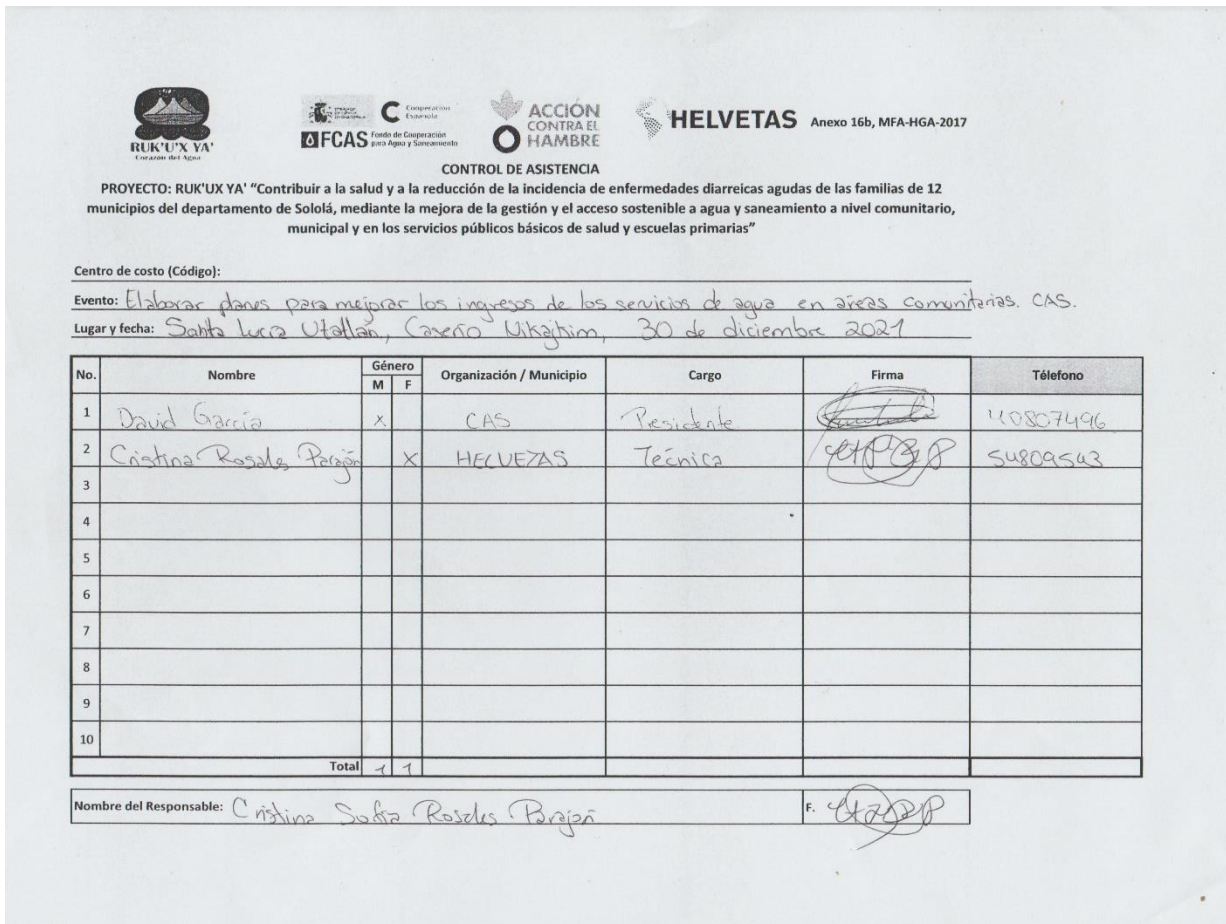 RUK'U'X YA'
Corazón del Agua
Cooperación
Española
FCAS Fondo de Cooperación
para Agua y Saneamiento
ACCIÓN
CONTRA EL
HAMBRE
HELVETAS Anexo 16b, MFA-HGA-2017
CONTROL DE ASISTENCIA
PROYECTO: RUK'UX YA' “Contribuir a la salud y a la reducción de la incidencia de enfermedades diarreicas agudas de las familias de 12
municipios del departamento de Sololá, mediante la mejora de la gestión y el acceso sostenible a agua y saneamiento a nivel comunitario,
municipal y en los servicios públicos básicos de salud y escuelas primarias”
Centro de costo (Código):
Evento: Elaborar planes para mejorar los ingresos de los servicios de agua en areas comunitarias. CAS.
Lugar y fecha: Santa Lucía Utatlán, Caserío Nikajkim, 30 de diciembre 2021
No. Nombre Género M F Organización / Municipio Cargo Firma Télefono
1 David García x CAS Presidente 40807496
2 Cristina Rosales Parajón X HELVETAS Técnica 54809543
3
4
5
6
7
8
9
10
Total 1 1
Nombre del Responsable: Cristina Sofia Rosales Parajón F.